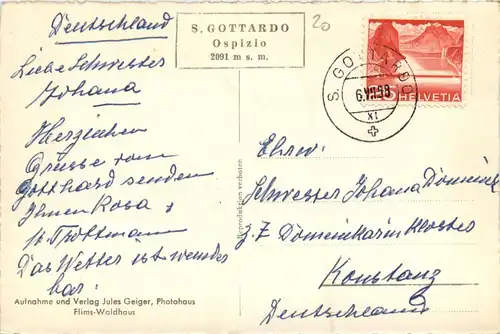 Deutschland
Liebe Schwester
Johana
Herzlichen
Grüsse vom
Gotthard senden
Ihnen Rosa &
M. Trottmann
Das Wetter ist wunder
bar.
Aufnahme und Verlag Jules Geiger, Photohaus
Flims-Waldhaus
S. GOTTARDO
Ospizio
2091 m s. m.
20
Reproduktion verboten
S. GOTTARDO
XI
HELVETIA
Ehrw.
Schwester Johana Dominik
z. Z Dominikarin Kloster
Konstanz
Deutschland